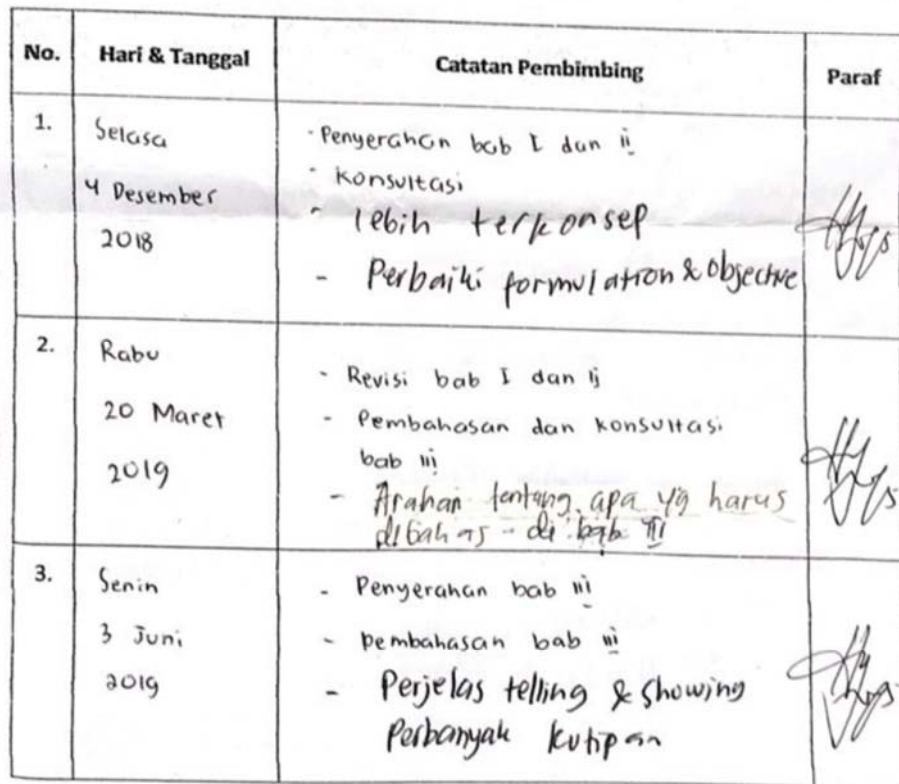 No. Hari & Tanggal Catatan Pembimbing Paraf
1. Selasa
4 Desember
2018
- Penyerahan bab I dan ii
- Konsultasi
- lebih terkonsep
- Perbaiki formulation & objective
2. Rabu
20 Maret
2019
- Revisi bab I dan ii
- Pembahasan dan konsultasi
bab iii
- Arahan tentang apa yg harus
dibahas di bab III
3. Senin
3 Juni
2019
- Penyerahan bab iii
- pembahasan bab iii
- Perjelas telling & showing
Perbanyak kutipan